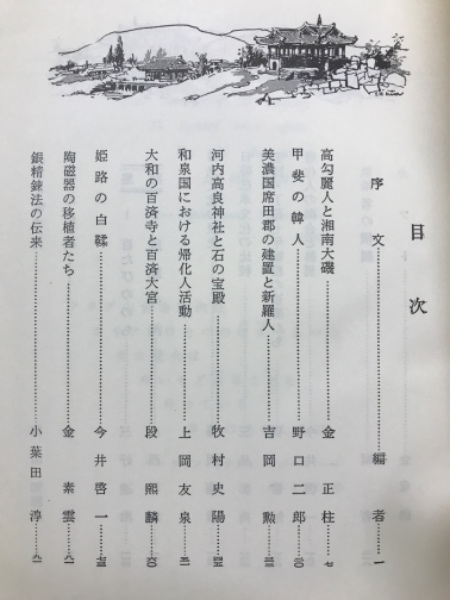 目次
序文………編者…一
高勾麗人と湘南大磯………金正柱…七
甲斐の韓人………野口二郎…三〇
美濃国席田郡の建置と新羅人………吉岡勲…三
河内高良神社と石の宝殿………牧村史陽…
和泉国における帰化人活動………上岡友泉…五一
大和の百済寺と百済大宮………段熙麟…六〇
姫路の白鞣………今井啓一…
陶磁器の移植者たち………金素雲…八一
銀精錬法の伝来………小葉田淳…九一